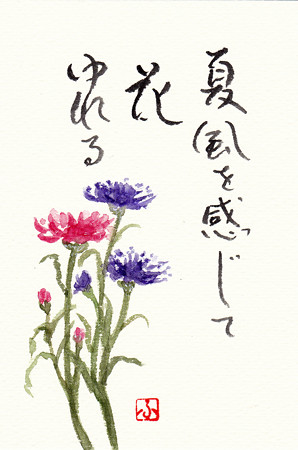 夏風を感じて
花
ゆれる
ふ